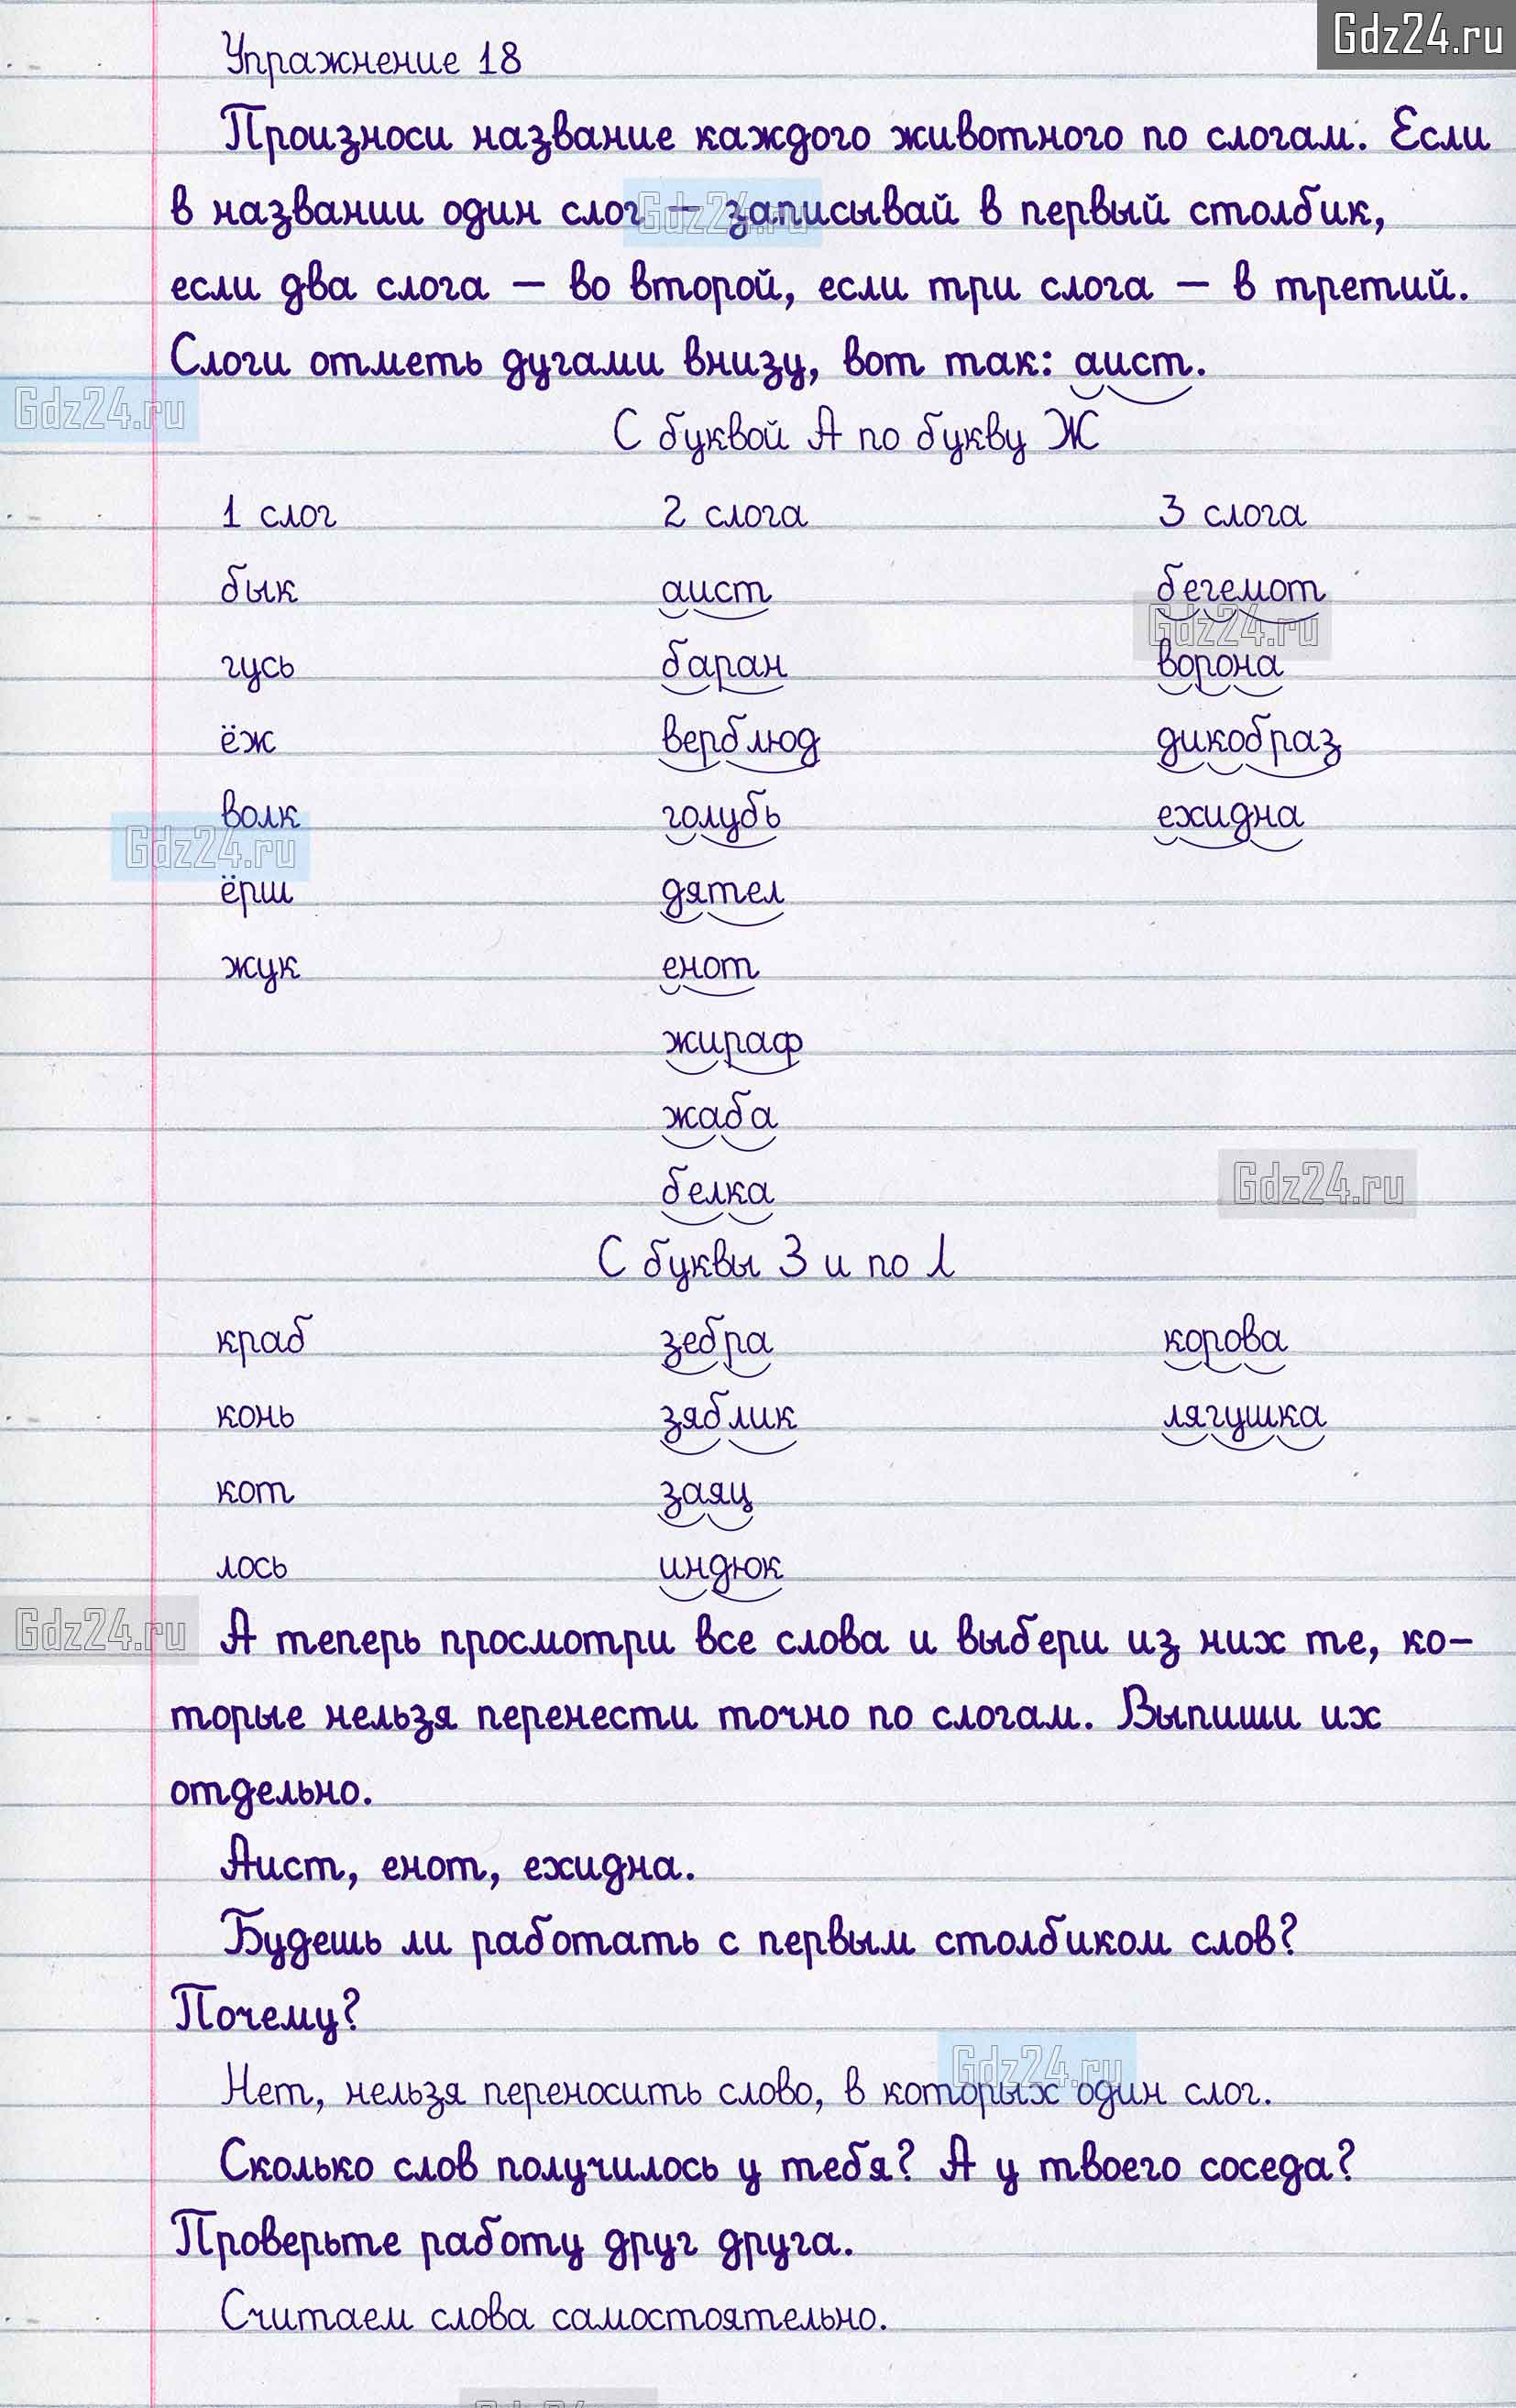 Gdz24.ru
Упражнение 18
Произноси название каждого животного по слогам. Если
в названии один слог – записывай в первый столбик,
если два слога – во второй, если три слога – в третий.
Слоги отметь дугами внизу, вот так: аист.
С буквой А по букву Ж
1 слог 2 слога 3 слога
бык аист бегемот
гусь баран ворона
ёж верблюд дикобраз
волк голубь ехидна
ёрш дятел
жук енот
жираф
жаба
белка
С буквы З и по Л
краб зебра корова
конь зяблик лягушка
кот заяц
лось индюк
А теперь просмотри все слова и выбери из них те, ко-
торые нельзя перенести точно по слогам. Выпиши их
отдельно.
Аист, енот, ехидна.
Будешь ли работать с первым столбиком слов?
Почему?
Нет, нельзя переносить слово, в которых один слог.
Сколько слов получилось у тебя? А у твоего соседа?
Проверьте работу друг друга.
Считаем слова самостоятельно.